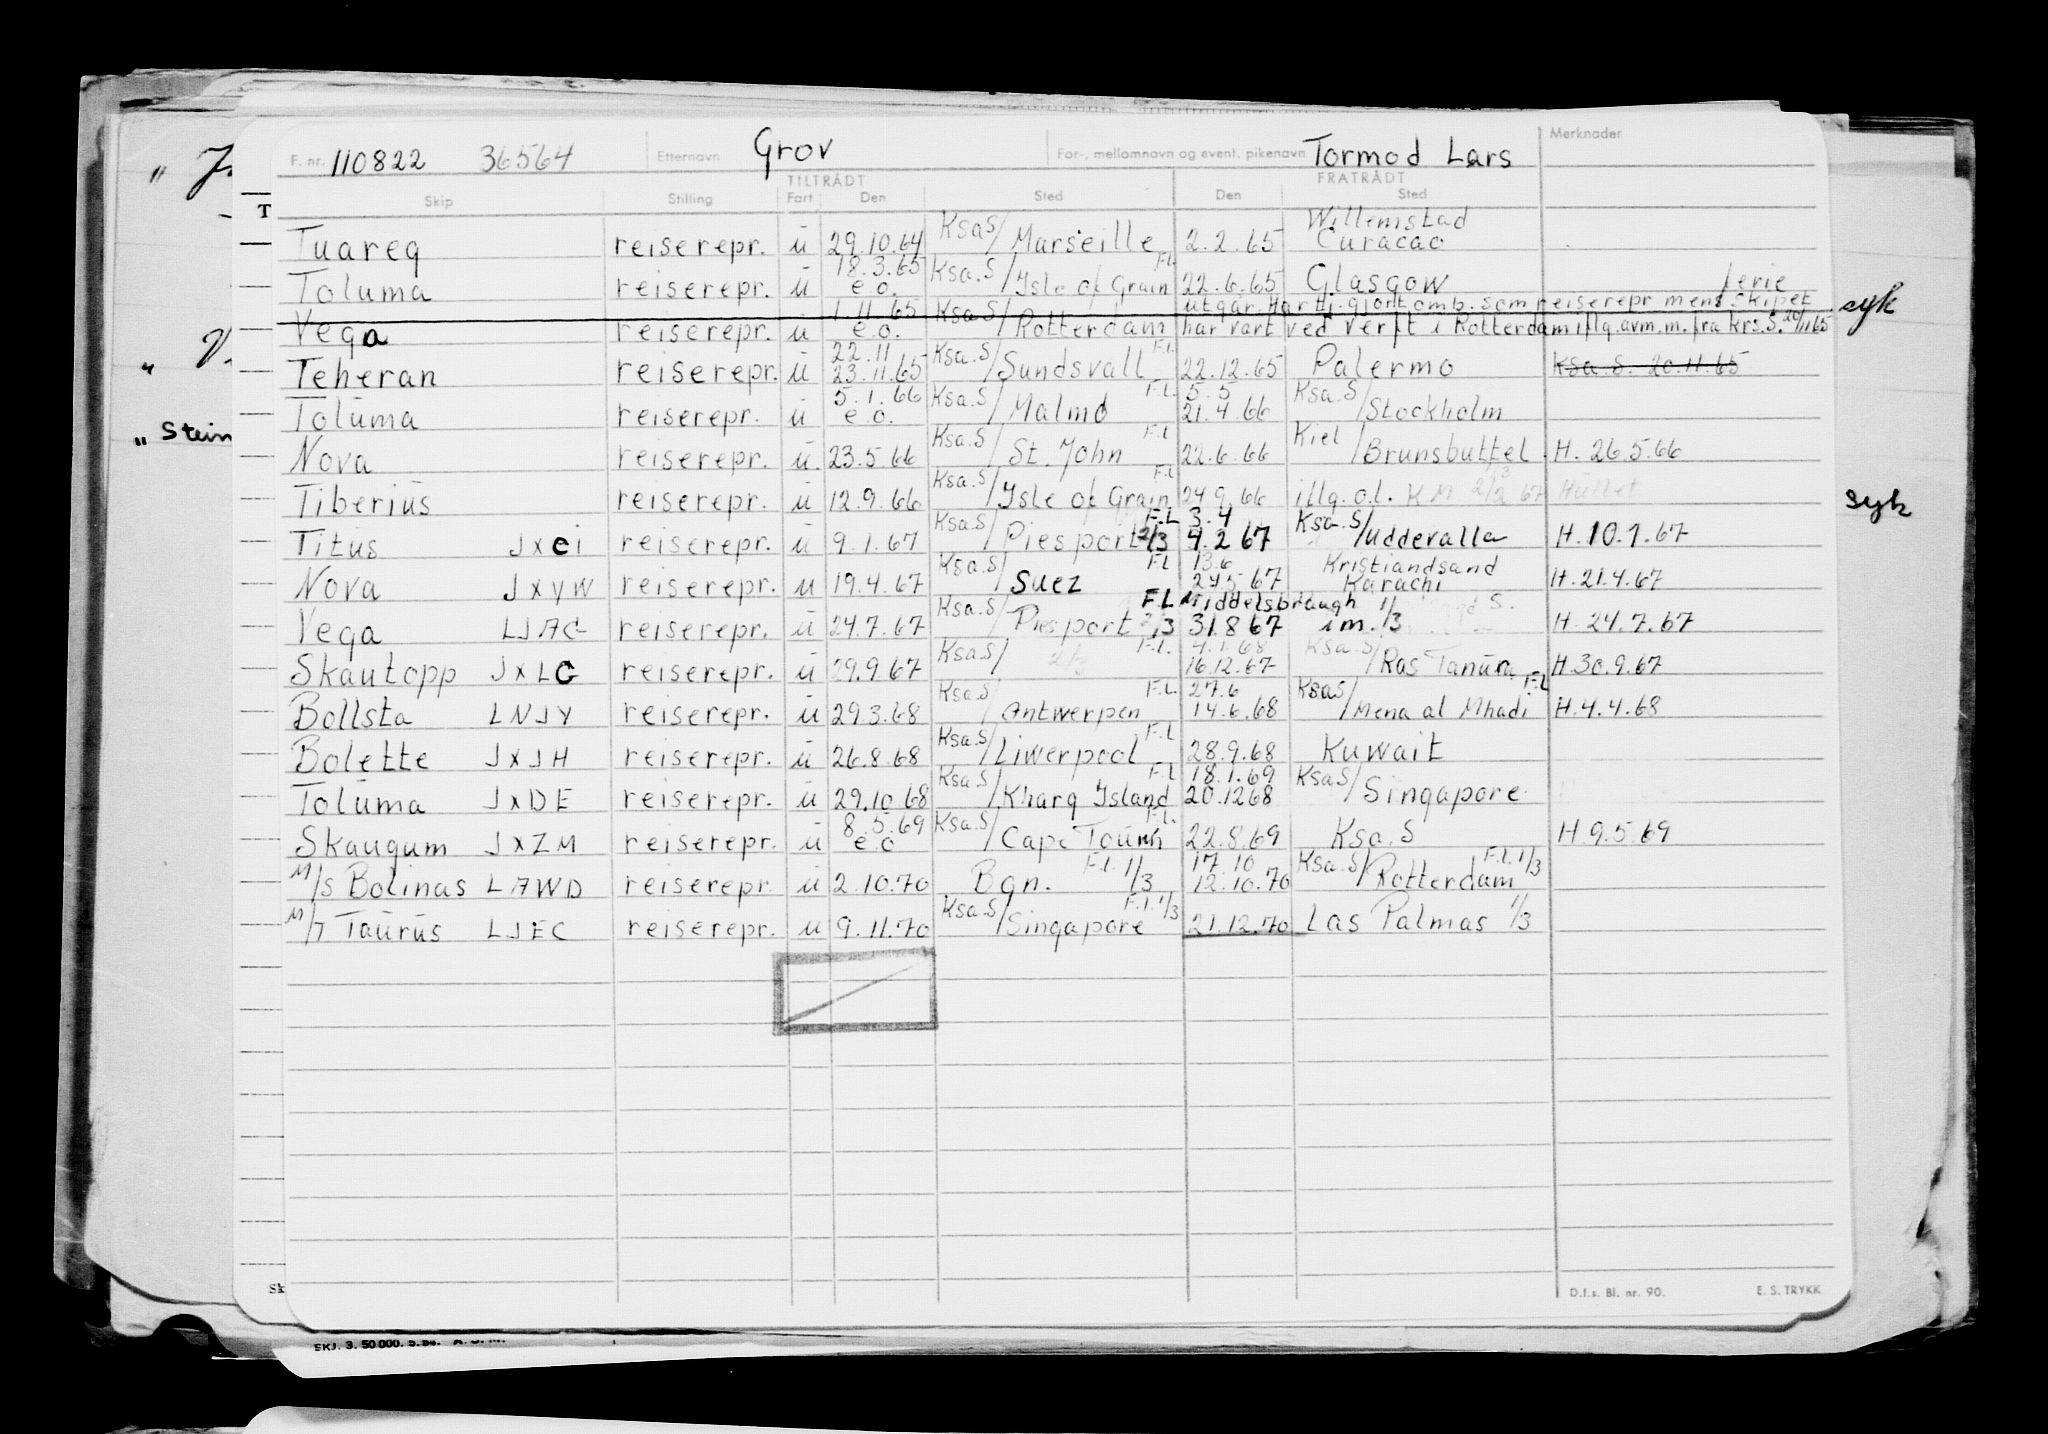 F. nr. 110822 36564 Etternavn Grov For-, mellomnavn og event. pikenavn Tormod Lars Merknader
TILTRÅDT FRATRÅDT
Skip Stilling Fart Den Sted Den Sted
Tuareg reiserepr. u 29.10.64 Ksa S/Marseille 2.2.65 Willemstad Curacao
Toluma reiserepr. u 18.3.65 e.o. Ksa.S/Isle of Grain F.L. 22.6.65 Glasgow ferie
Vega reiserepr. u 1.11.65 e.o. Ksa S/Rotterdam utgår. Har tj.gjort omb. som reiserepr mens skipet
har vært ved verft i Rotterdam iflg. avm. m. fra Krs. S. 20/11 65
Teheran reiserepr. u 22.11 23.11.65 Ksa.S/Sundsvall F.L. 22.12.65 Palermo Ksa.S. 20.11.65
Toluma reiserepr. u 5.1.66 e.o. Ksa.S/Malmö F.L. 5.5 21.4.66 Ksa.S/Stockholm
Nova reiserepr. u. 23.5.66 Ksa.S/St. John F.L 22.6.66 Kiel/Brunsbuttel H. 26.5.66
Tiberius reiserepr. u 12.9.66 Ksa.S/Isle of Grain F.L 24 9.66 illg. o.l. K M. 67 Hullet
Titus JXCI reiserepr. u 9.1.67 Ksa.S/Piesport F.L 2/3 3.4 4.2 67 Ksa.S/Uddevalla H.10.1.67
Nova JXYW reiserepr. u 19.4.67 Ksa.S/Suez FL 13.6 67 Kristiandsand Karachi H.21.4.67
Vega LJAG reiserepr. u 24.7.67 Ksa.S/Piesport 2/3 F.L Middelsbraugh 1/3 S. 31.8 67 im. 1/3 H. 24.7.67
Skautopp JXLG reiserepr. u 29.9.67 Ksa.S/ 2/3 F.L. 4.1.68 16.12.67 Ksa.S/Ras Tanura H.30.9.67
Bollsta LNJY reiserepr. u 29.3.68 Ksa.S/Antwerpen F.L. 27.6 14.6.68 Ksa S/Mena al Mhadi F.L H.4.4.68
Bolette JXJH reiserepr. u 26.8.68 Ksa.S/Liwerpool F.L 28.9.68 Kuwait
Toluma JXDE reiserepr. u 29.10 68 Ksa.S/Kharg Island F.L 18.1.69 20.12 68 Ksa S/Singapore
Skaugum JXZM reiserepr. u 8.5.69 e.o Ksa.S/Cape Town F.L. 22.8.69 Ksa.S H.9.5.69
M/S Bolinas LAWD reiserepr. u 2.10.70 Bgn. F.l. 1/3 1/3 17.10 12.10.70 Ksa.S/Rotterdam F.l. 1/3
M/T Taurus LJEC reiserepr. u 9.11.70 Ksa.S/Singapore F.l. 1/3 21.12.70 Las Palmas 1/3
D.f.s. Bl. nr. 90. E. S. TRYKK
syk
syk
„ Stein
T
Sk
SKJ. 3. 50 000.